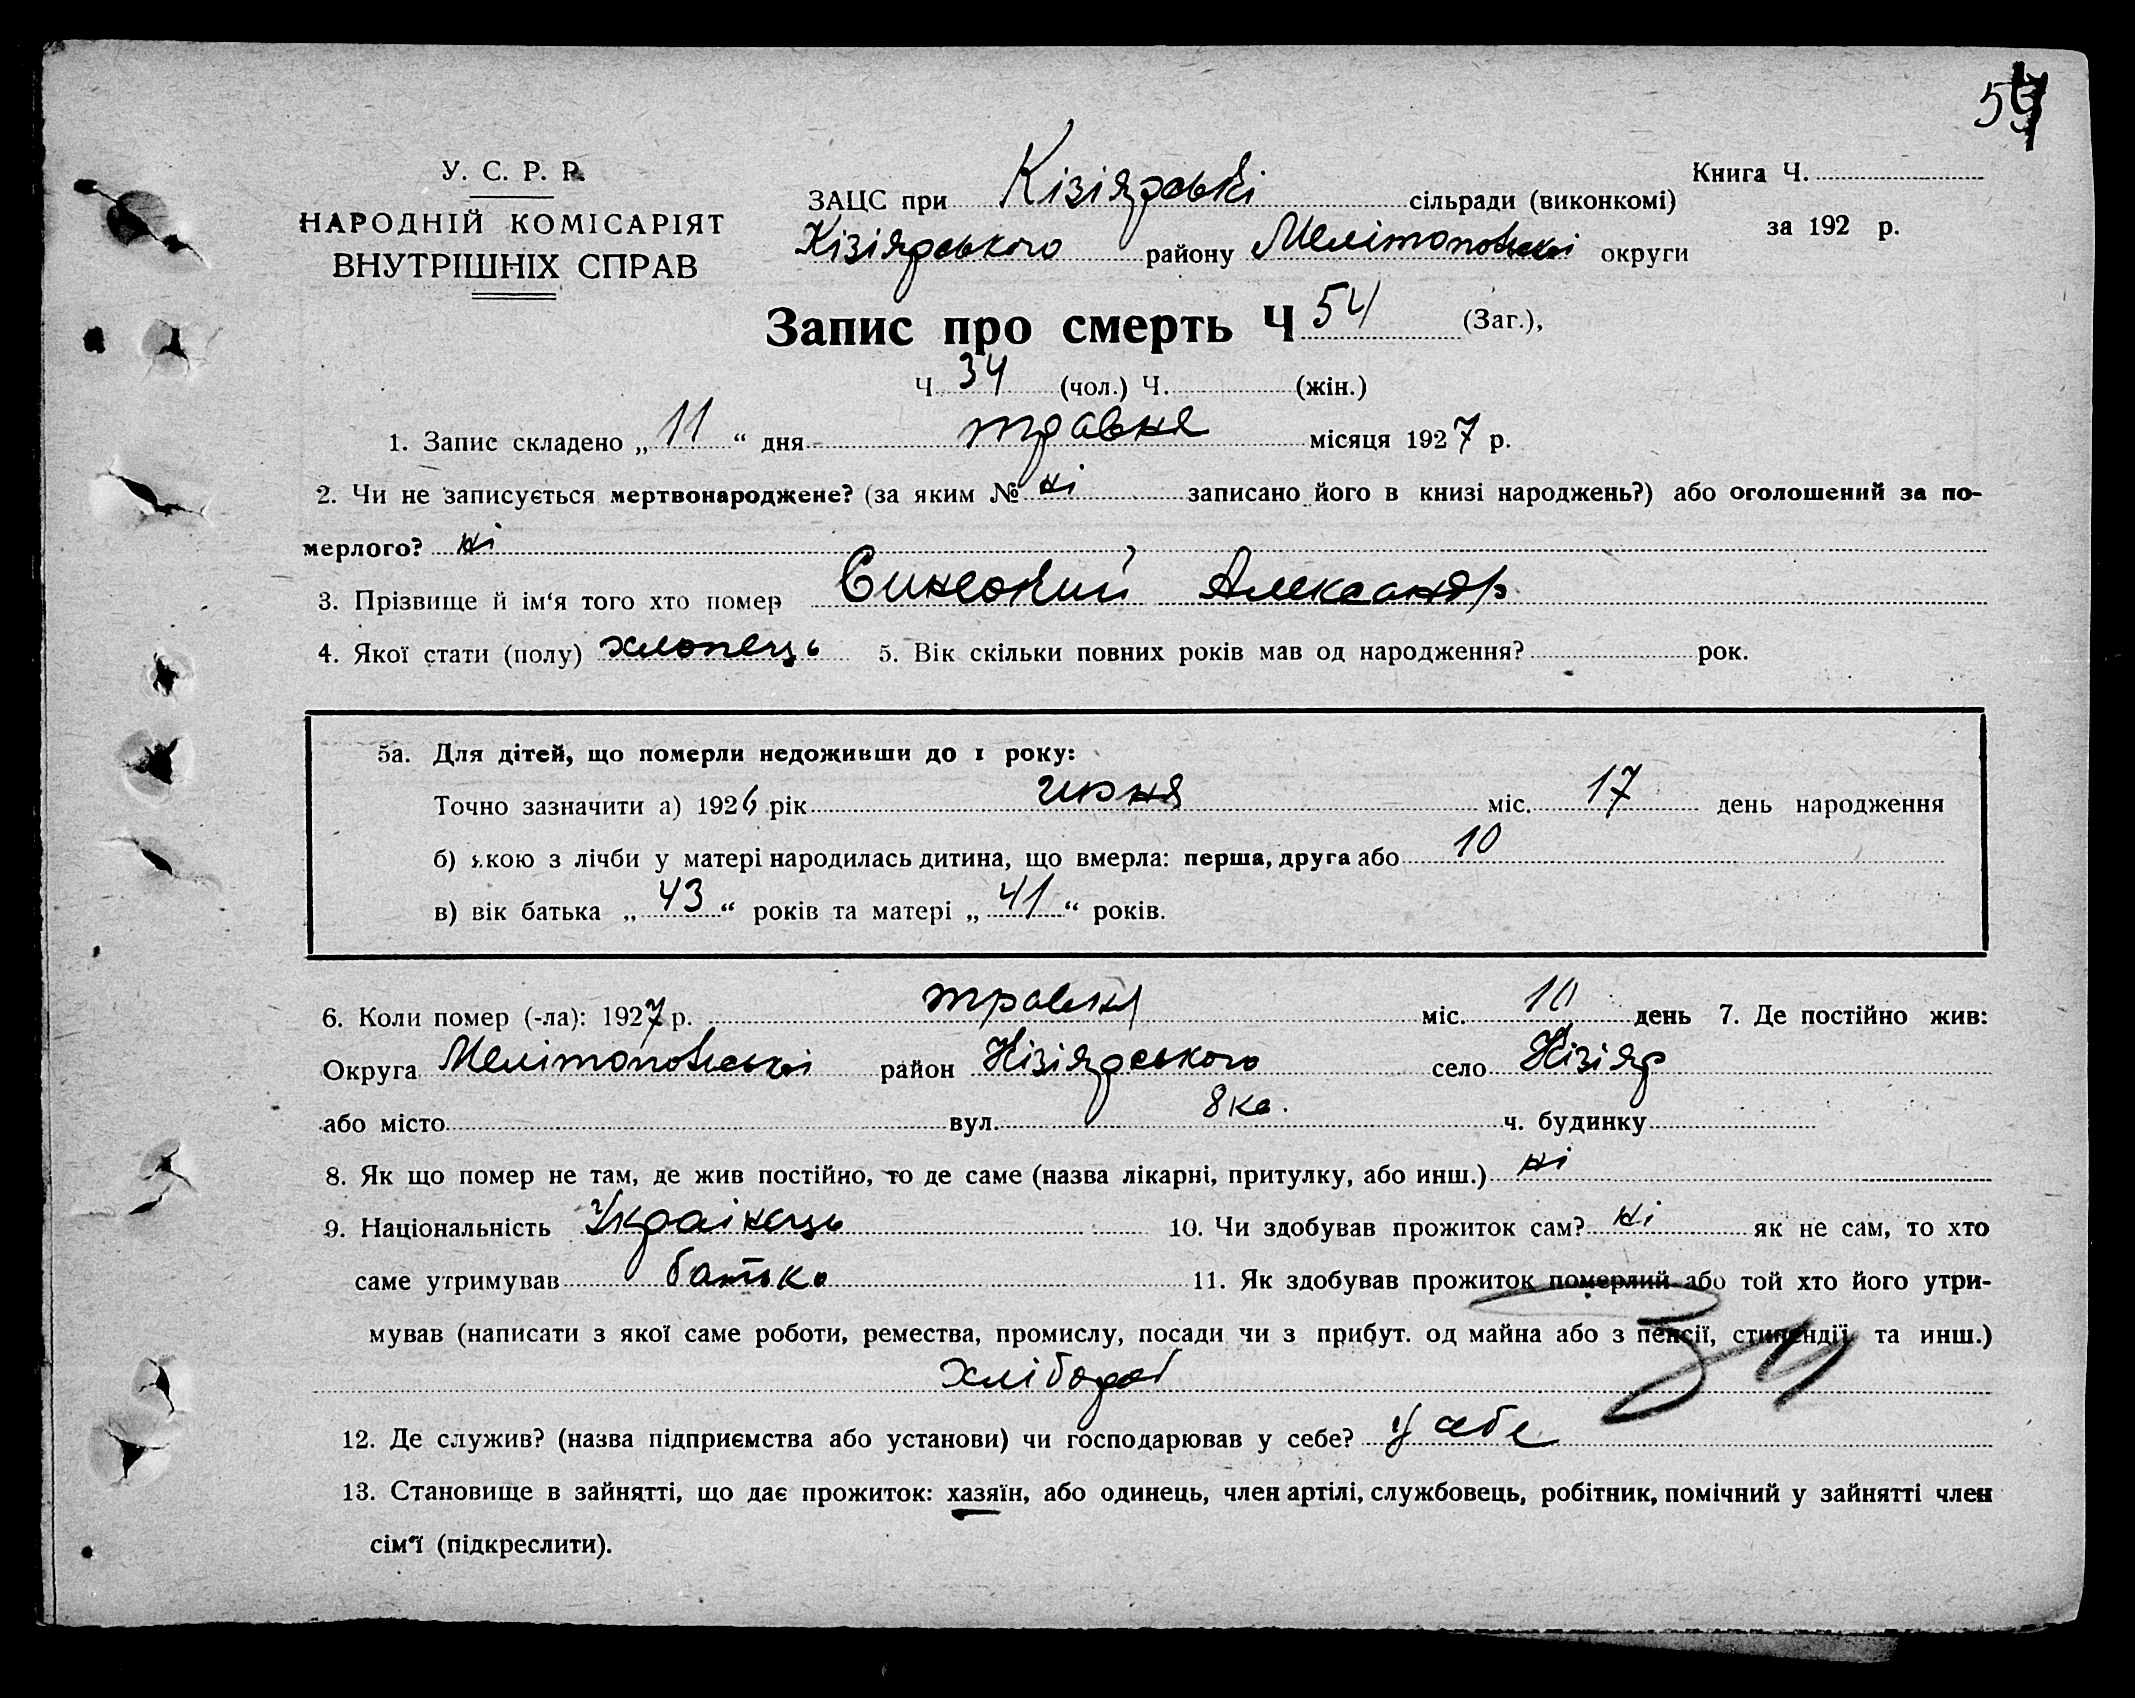 54
У. С. Р. Р.
НАРОДНІЙ КОМІСАРІЯТ
ВНУТРІШНІХ СПРАВ
ЗАЦС при Кізіярські сільради (виконкомі)
Кізіярського району Мелітопольскі округи
Книга Ч.
за 192 р.
Запис про смерть Ч 54 (Заг.),
Ч 34 (чол.) Ч. (жін.)
1. Запис складено „ 11 “ дня травня місяця 1927 р.
2. Чи не записується мертвонароджене? (за яким № ні записано його в книзі народжень?) або оголошений за по-
мерлого? ні
3. Прізвище й ім‘я того хто помер Александр
4. Якої стати (полу) хлопець 5. Вік скільки повних років мав од народження? рок.
5а. Для дітей, що померли недоживши до 1 року:
Точно зазначити а) 1926 рік июня міс. 17 день народження
б) якою з лічби у матері народилась дитина, що вмерла: перша, друга або 10
в) вік батька „ 43 “ років та матері „ 41 “ років.
6. Коли помер (-ла): 1927 р. травня міс. 10 день 7. Де постійно жив:
Округа Мелітопольскі район Кізіярського село Кізіяр
або місто вул. 8 ка. ч. будинку
8. Як що помер не там, де жив постійно, то де саме (назва лікарні, притулку, або инш.) ні
9. Національність Українець 10. Чи здобував прожиток сам? ні як не сам, то хто
саме утримував батько 11. Як здобував прожиток померлий або той хто його утри-
мував (написати з якої саме роботи, ремества, промислу, посади чи з прибут. од майна або з пенсії, стипендії та инш.)
хлібороб
34
12. Де служив? (назва підприємства або установи) чи господарював у себе? у себе
13. Становище в зайнятті, що дає прожиток: хазяїн, або одинець, член артілі, службовець, робітник, помічний у зайнятті член
сім‘ї (підкреслити).